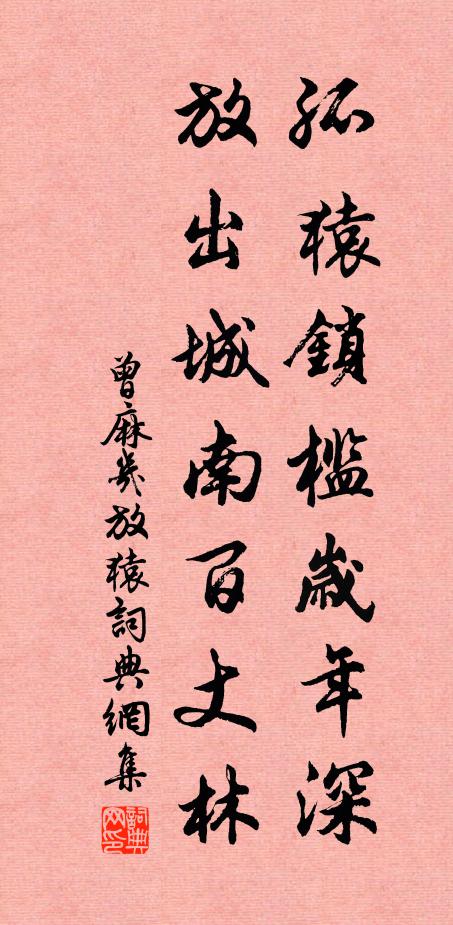 孤猿鎖檻歲年深
放出城南百丈林
曾麻幾放猿詞典網集
詞典網印